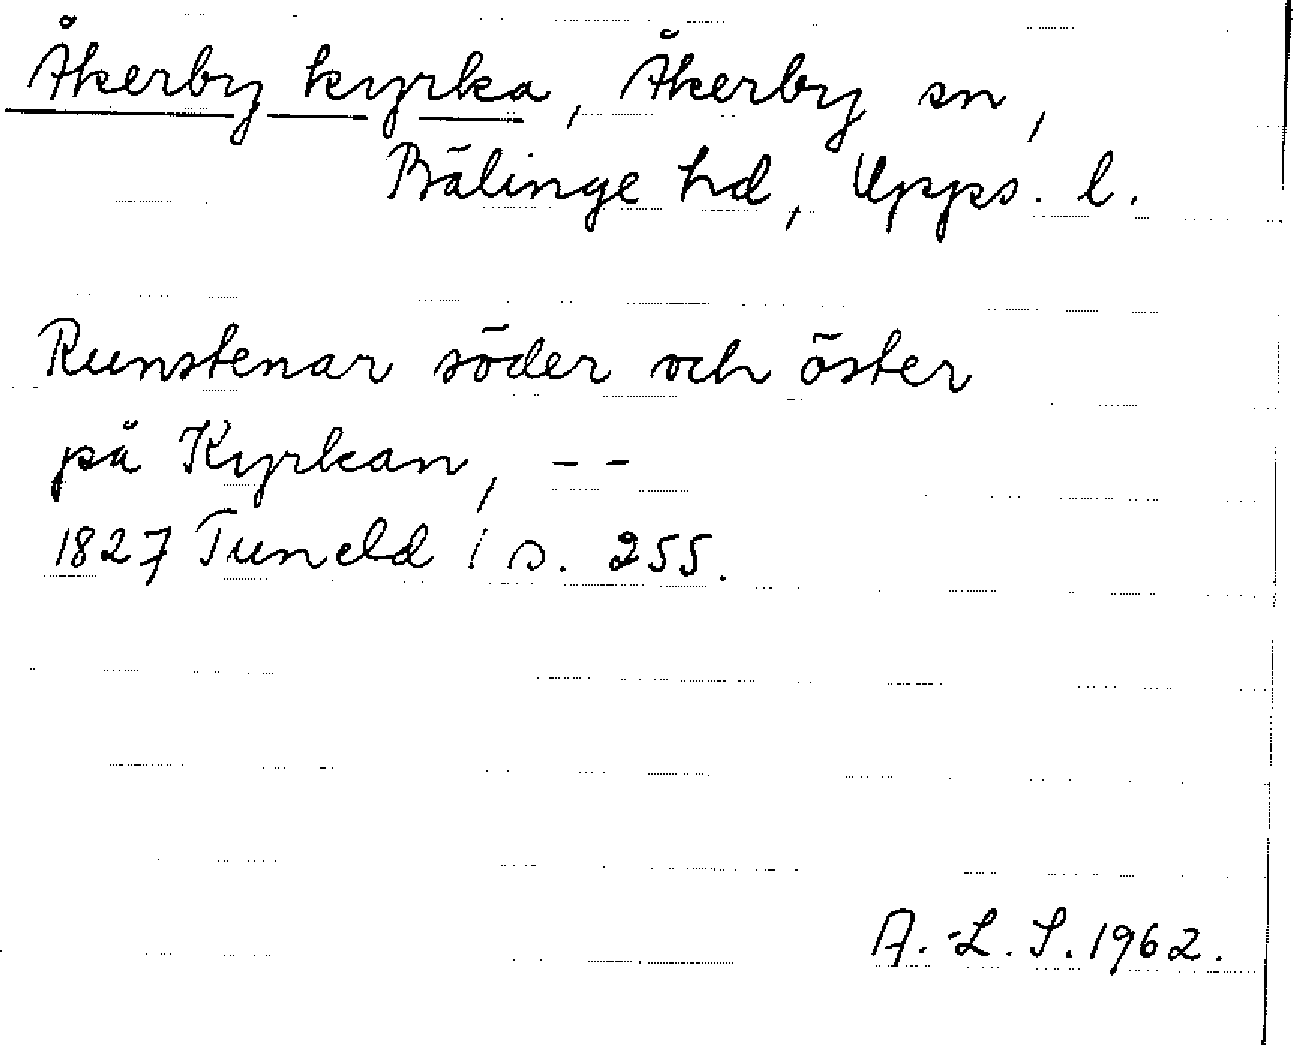 Åkerby kyrka, Åkerby sn,
Bälinge hd, Upps. l.
Runstenar söder och öster
på Kyrkan, – –
1827 Tuneld 1 s. 255.
A.-L. S. 1962.